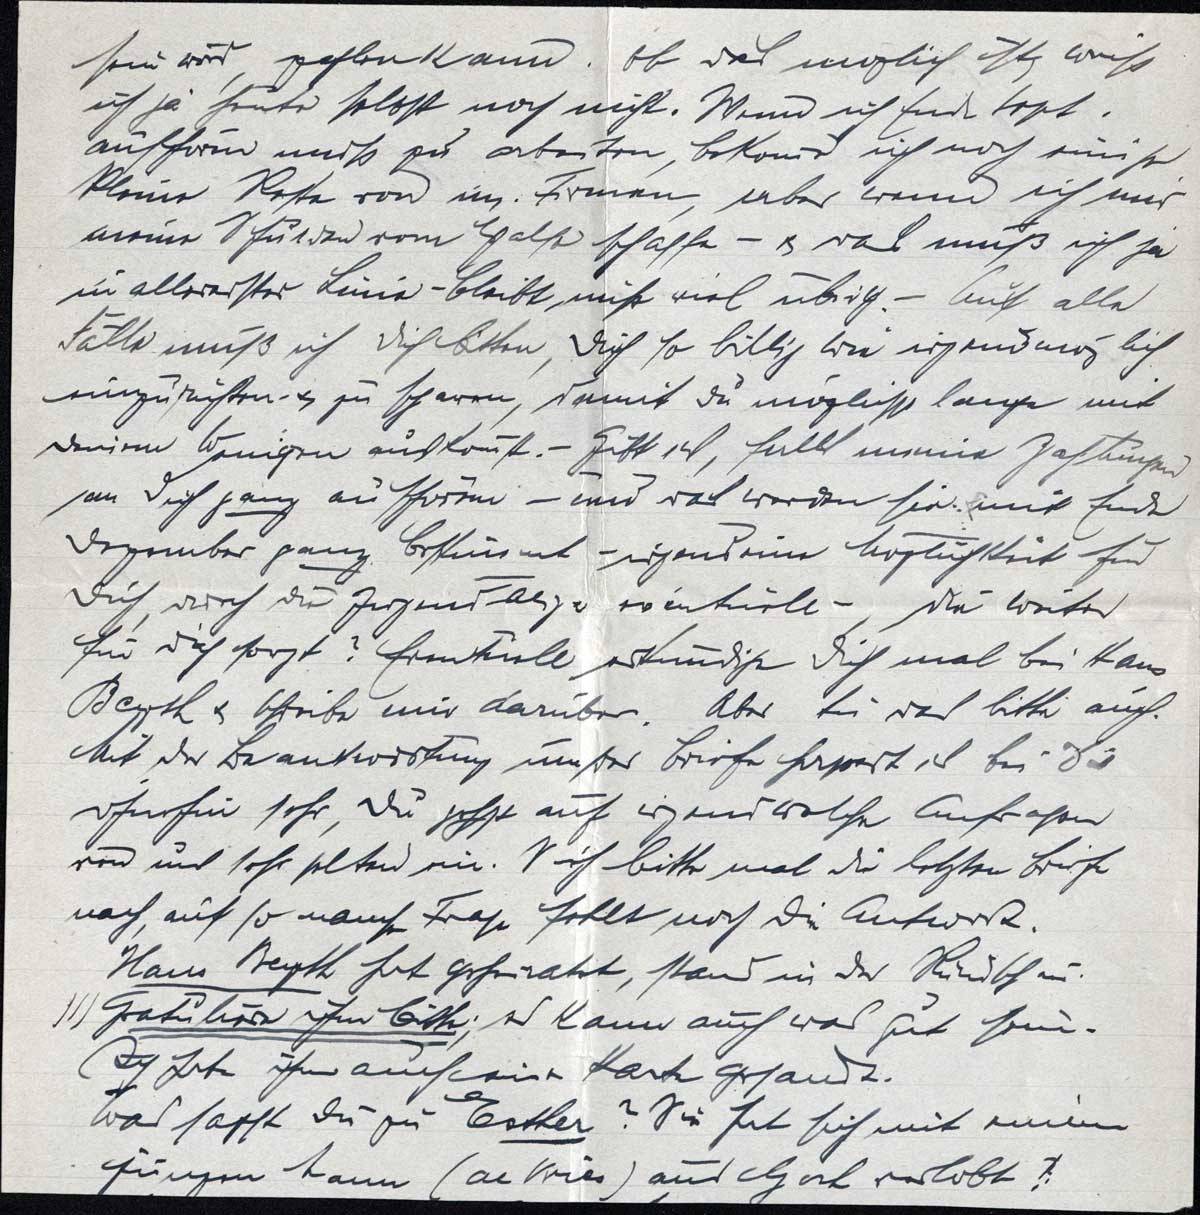 sein wird, zahlen kann. Ob das möglich ist, weiss
ich ja heute selbst noch nicht. Wenn ich Ende Sept.
aufhören muß zu arbeiten, bekomme ich noch einige
kleine Reste von m. Firmen, aber wenn ich mir
meine Schulden vom Halse schaffe – & das muß ich ja
in allererster Linie – bleibt nicht viel übrig. – Auf alle
Fälle muß ich Dich bitten, Dich so billig wie irgendmöglich
einzurichten & zu sparen, damit Du möglichst lange mit
deinem Wenigen auskommst. – Gibt es, falls meine Zahlungen
an Dich ganz aufhören – und das werden sie mit Ende
Dezember ganz bestimmt – irgendeine Möglichkeit für
Dich, durch die Jugend Aliya eventuell –, die weiter
für Dich sorgt? Eventuell erkundige Dich mal bei Hans
Beyth & schreibe mir darüber. Aber tu das bitte auch.
Mit der Beantwortung unserer Briefe hapert es bei Dir
ohnehin sehr, Du gehst auf irgendwelche Anfragen
von uns sehr selten ein. Sieh bitte mal die letzten Briefe
nach, auf so manche Frage fehlt noch die Antwort.
Hans Beyth hat geheiratet, stand in der Rundschau.
!!! Gratuliere ihm bitte; es kann auch was gut sein.
Ich habe ihm auch eine Karte gesandt.
Was sagst Du zu Esther? Sie hat sich mit einem
jungen Mann (de Vries) aus verlobt?!